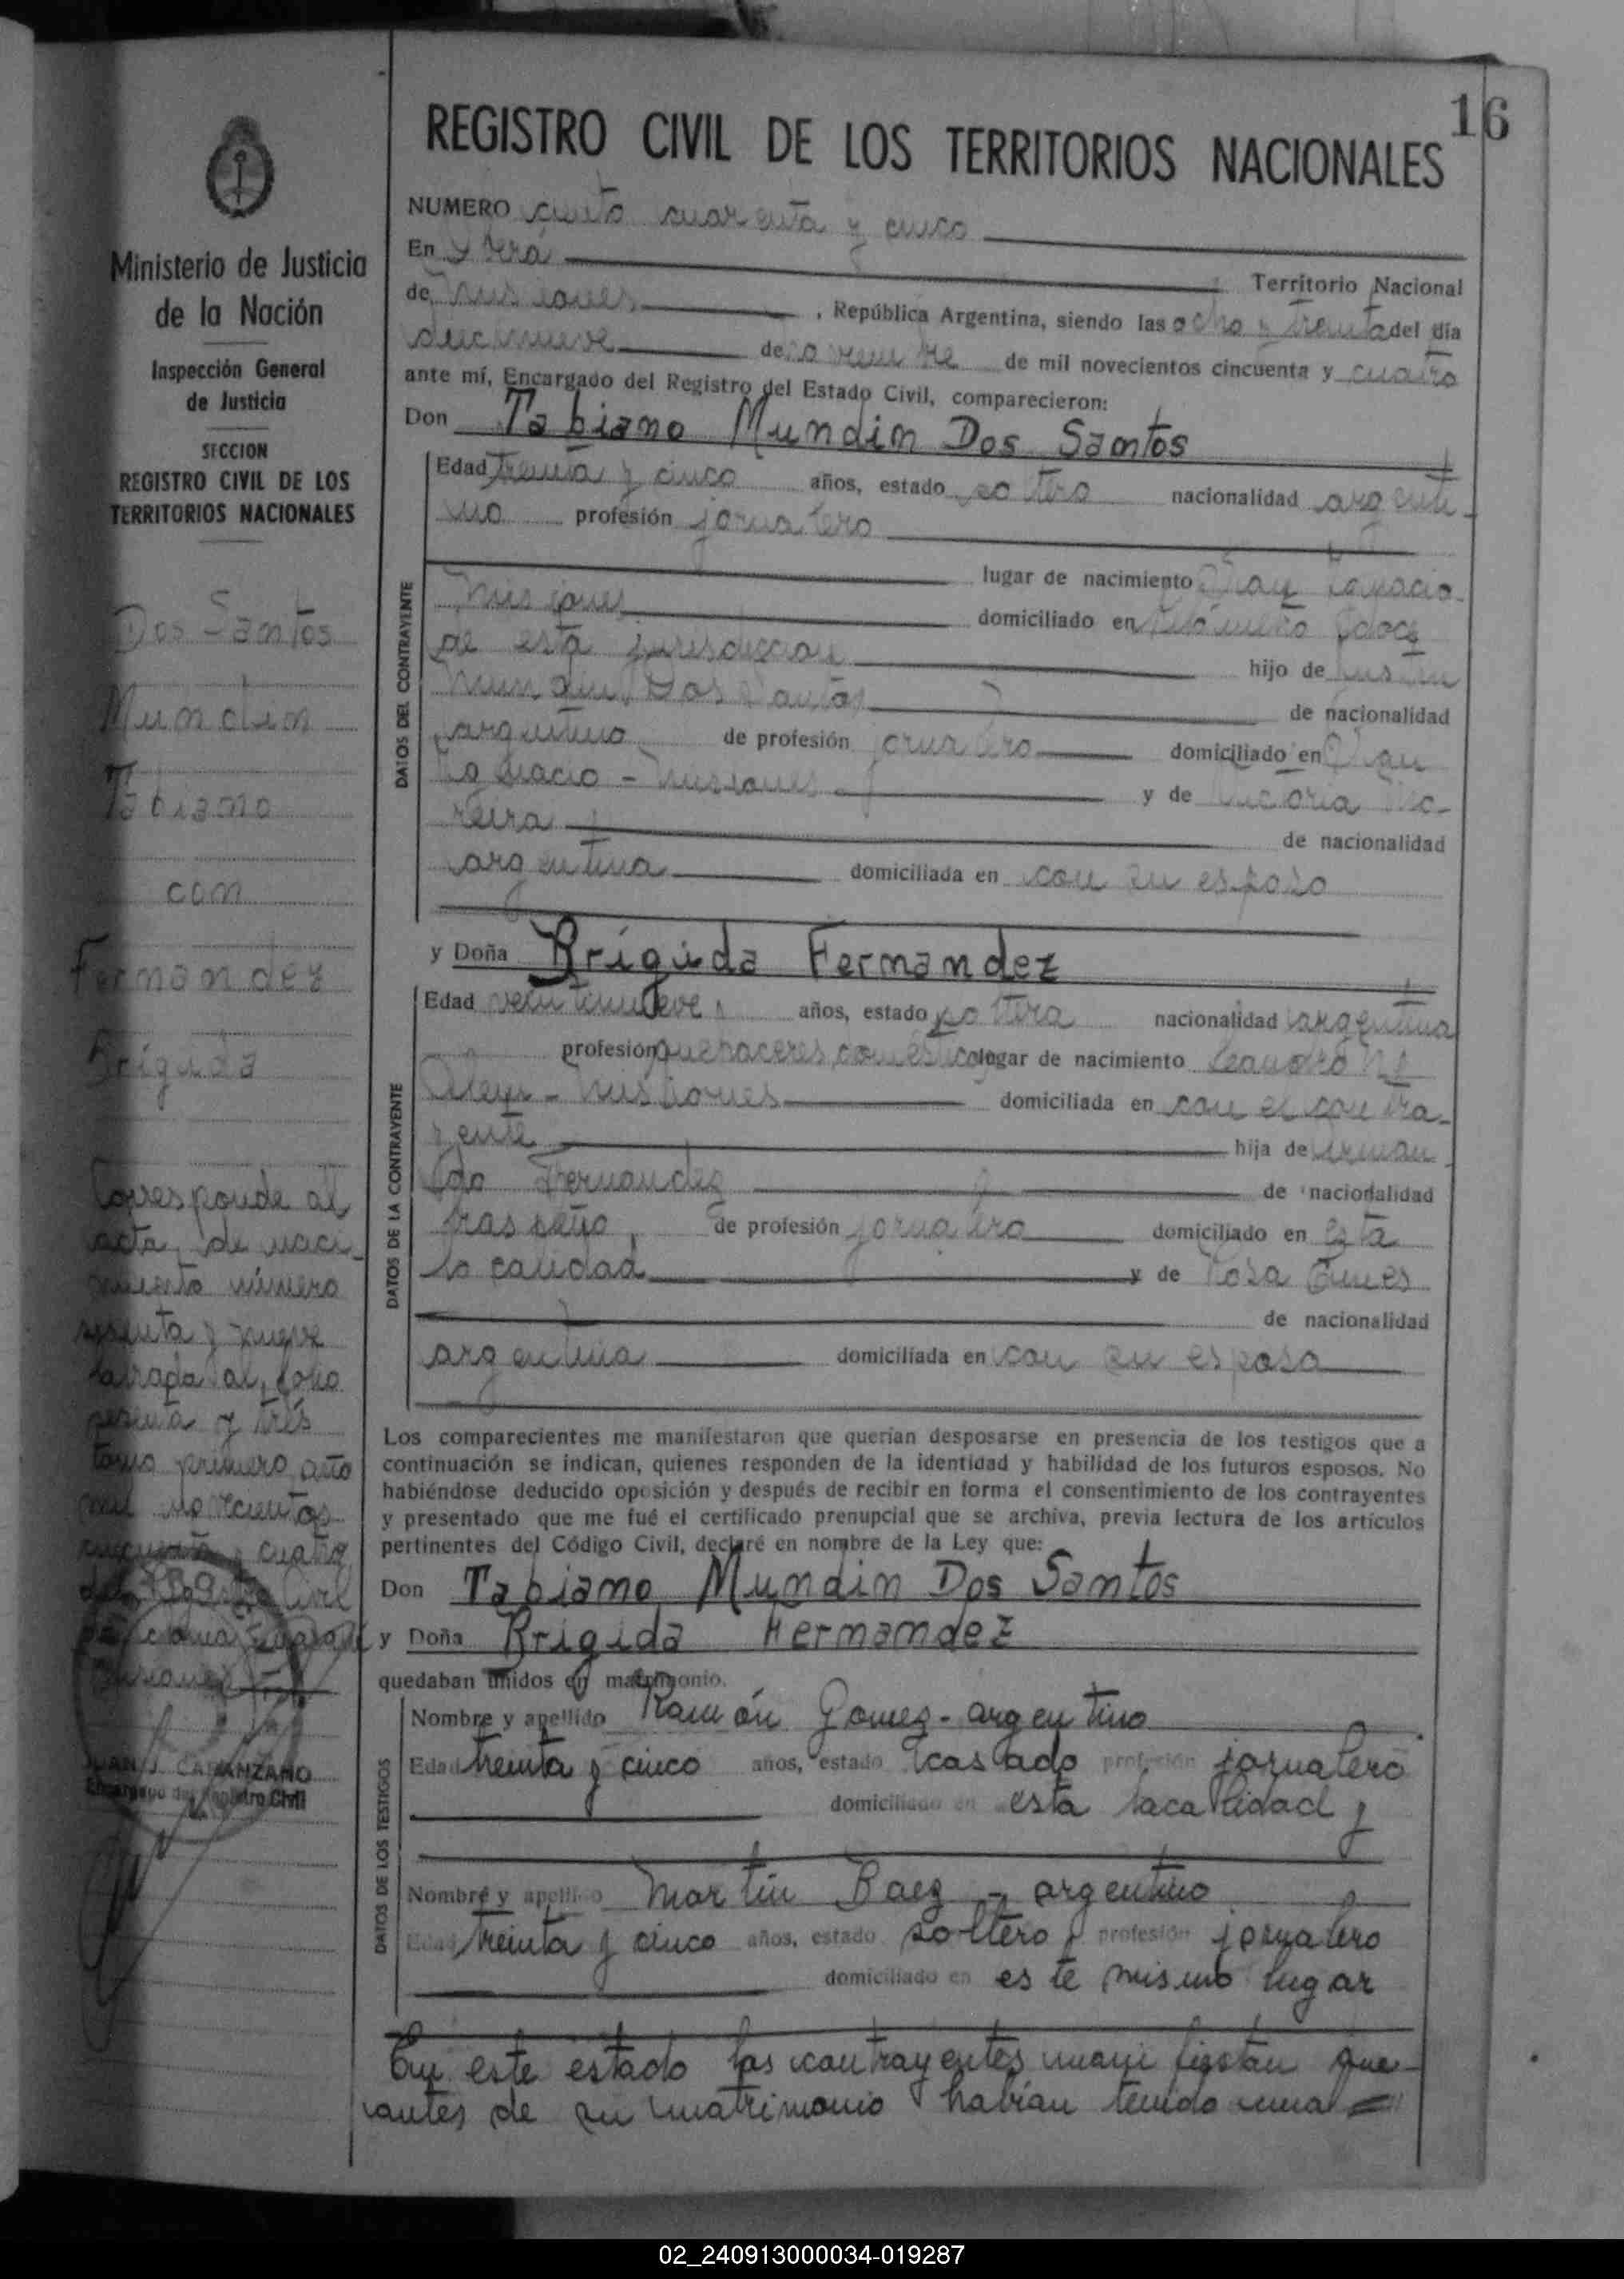 16
REGISTRO CIVIL DE LOS TERRITORIOS NACIONALES
Ministerio de Justicia
de la Nación
Inspección General
de Justicia
SECCION
REGISTRO CIVIL DE LOS
TERRITORIOS NACIONALES
Dos Santos
Mundin
Tabiano
con
Fernandez
Brigida
Corresponde al
acta de naci-
miento número
sesenta y nueve
labrada al folio
sesenta y tres
tomo primero año
mil novecientos
cincuenta y cuatro
del Registro Civil
Misiones
JUAN J. CAPANZANO
Encargado del Registro Civil
NUMERO ciento cuarenta y cinco
En Yerá Territorio Nacional
de Misiones , República Argentina, siendo las ocho y treinta del día
diecinueve de noviembre de mil novecientos cincuenta y cuatro
ante mí, Encargado del Registro del Estado Civil, comparecieron:
Don Tabiano Mundin Dos Santos
DATOS DEL CONTRAYENTE
Edad treinta y cinco años, estado soltero nacionalidad argenti-
no profesión jornalero
lugar de nacimiento San Ignacio-
Misiones domiciliado en kilómetro doce
de esta jurisdiccion hijo de
Mundin Dos Santos de nacionalidad
argentino de profesión jornalero domiciliado en San
Ignacio - Misiones y de Victoria Mo-
reira de nacionalidad
argentina domiciliada en con su esposo
y Doña Brígida Fernandez
DATOS DE LA CONTRAYENTE
Edad veintinueve años, estado soltera nacionalidad argentina
profesión quehaceres domésticos lugar de nacimiento Leandro N.
Alem - Misiones domiciliada en con el contra-
yente hija de Arman-
do Fernandez de nacionalidad
brasileño de profesión jornalero domiciliado en esta
localidad y de Rosa
de nacionalidad
argentina domiciliada en con su esposo
Los comparecientes me manifestaron que querían desposarse en presencia de los testigos que a
continuación se indican, quienes responden de la identidad y habilidad de los futuros esposos. No
habiéndose deducido oposición y después de recibir en forma el consentimiento de los contrayentes
y presentado que me fué el certificado prenupcial que se archiva, previa lectura de los artículos
pertinentes del Código Civil, declaré en nombre de la Ley que:
Don Tabiano Mundin Dos Santos
y Doña Brigida Hernandez
quedaban unidos en matrimonio.
DATOS DE LOS TESTIGOS
Nombre y apellido Ramón Gomez - argentino
Edad treinta y cinco años, estado casado profesión jornalero
domiciliado en esta localidad y
Nombre y apellido Martin Baez - argentino
Edad treinta y cinco años, estado soltero profesión jornalero
domiciliado en este mismo lugar
En este estado los contrayentes manifiestan que
antes de su matrimonio habían tenido una
02_240913000034-019287